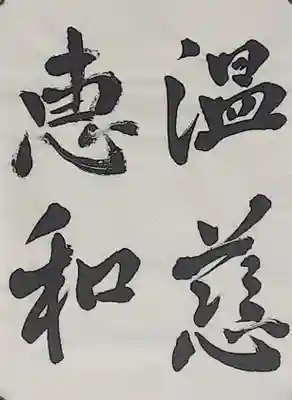 温慈
恵和